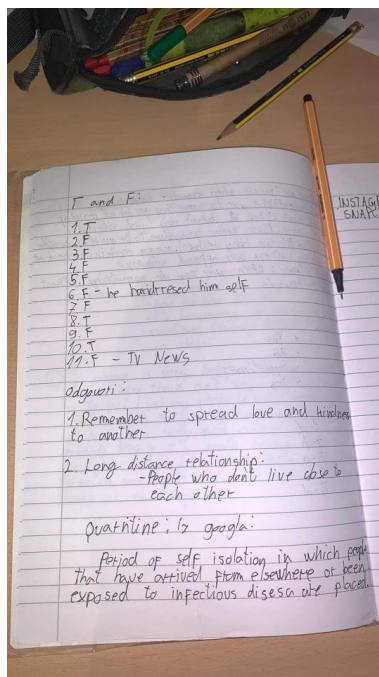 T and F:
1. T
2. F
3. F
4. F
5. F
6. F - he hairdresed him self
7. F
8. T
9. F
10. T
11. F - TV News
odgovori:
1. Remember to spread love and kindness
to another
2. Long distance relationship:
- People who dont live close to
each other
Quarntine: Iz googla:
Period of self isolation in which people
that have arrived from elsewhere or been
exposed to infectious disesa are placed.
INSTAG
SNAPC